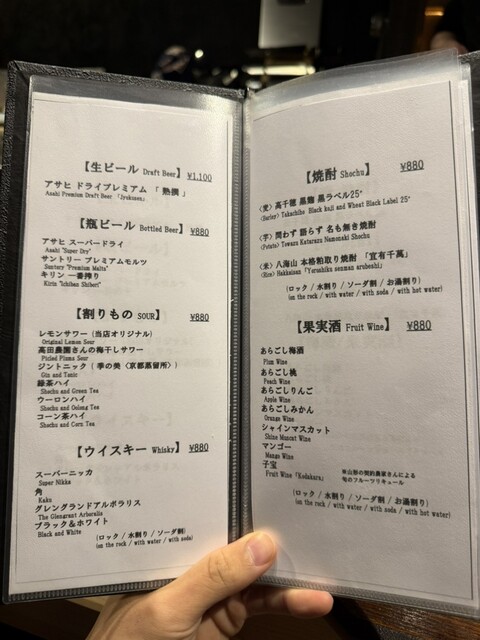 【生ビール Draft Beer】 ¥1,100
アサヒ ドライプレミアム 「 熟撰 」
Asahi Premium Draft Beer 「Jyukusen」
【瓶ビール Bottled Beer】 ¥880
アサヒ スーパードライ
Asahi "Super Dry"
サントリー プレミアムモルツ
Suntory "Premium Malts"
キリン 一番搾り
Kirin "Ichiban Shibori"
【割りもの SOUR】 ¥880
レモンサワー (当店オリジナル)
Original Lemon Sour
高田農園さんの梅干しサワー
Picled Plums Sour
ジントニック ( 季の美〈京都蒸留所〉)
Gin and Tonic
緑茶ハイ
Shochu and Green Tea
ウーロンハイ
Shochu and Oolong Tea
コーン茶ハイ
Shochu and Corn Tea
【ウイスキー Whisky】 ¥880
スーパーニッカ
Super Nikka
角
Kaku
グレングランドアルボラリス
The Glengrant Arboralis
ブラック＆ホワイト
Black and White
(ロック / 水割り / ソーダ割)
(on the rock / with water / with soda)
【焼酎 Shochu】 ¥880
〈麦〉高千穂 黒麹 黒ラベル25°
(Barley) Takachiho Black kuji and Wheat Black Label 25°
〈芋〉問わず 語らず 名も無き焼酎
(Potato) Towazu Katarazu Namonaki Shochu
〈米〉八海山 本格粕取り焼酎 「宜有千萬」
(Rice) Hakkaisan 「Yoroshiku senman arubeshi」
(ロック / 水割り / ソーダ割 / お湯割り)
(on the rock / with water / with soda / with hot water)
【果実酒 Fruit Wine】 ¥880
あらごし梅酒
Plum Wine
あらごし桃
Peach Wine
あらごしりんご
Apple Wine
あらごしみかん
Orange Wine
シャインマスカット
Shine Muscut Wine
マンゴー
Mango Wine
子宝
Fruit Wine 「Kodakara」
※山形の契約農家さんによる
旬のフルーツリキュール
(ロック / 水割り / ソーダ割 / お湯割り)
(on the rock / with water / with soda / with hot water)